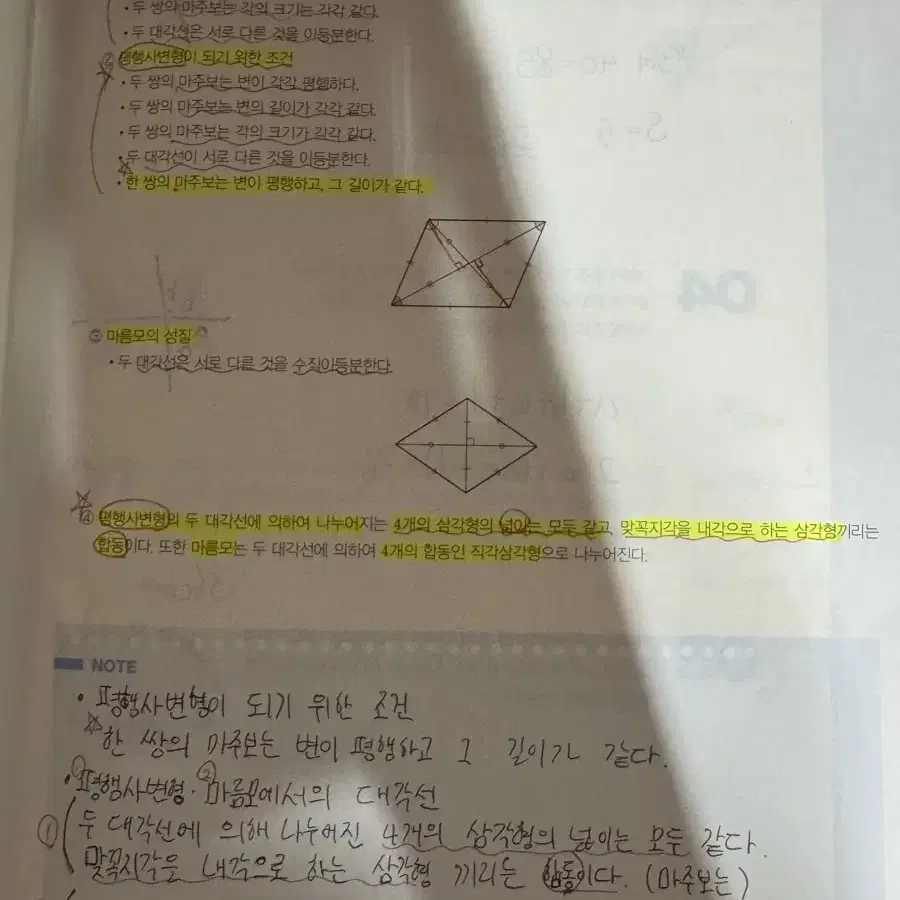 • 두 쌍의 마주보는 각의 크기는 각각 같다.
• 두 대각선은 서로 다른 것을 이등분한다.
② 평행사변형이 되기 위한 조건
• 두 쌍의 마주보는 변이 각각 평행하다.
• 두 쌍의 마주보는 변의 길이가 각각 같다.
• 두 쌍의 마주보는 각의 크기가 각각 같다.
• 두 대각선이 서로 다른 것을 이등분한다.
• 한 쌍의 마주보는 변이 평행하고, 그 길이가 같다.
04
③ 마름모의 성질
• 두 대각선은 서로 다른 것을 수직이등분한다.
④ 평행사변형의 두 대각선에 의하여 나누어지는 4개의 삼각형의 넓이는 모두 같고, 맞꼭지각을 내각으로 하는 삼각형끼리는
합동이다. 또한 마름모는 두 대각선에 의하여 4개의 합동인 직각삼각형으로 나누어진다.
NOTE
• 평행사변형이 되기 위한 조건
한 쌍의 마주보는 변이 평행하고 그 길이가 같다.
• ①평행사변형·②마름모에서의 대각선
① 두 대각선에 의해 나누어진 4개의 삼각형의 넓이는 모두 같다.
맞꼭지각을 내각으로 하는 삼각형 끼리는 합동이다. (마주보는)